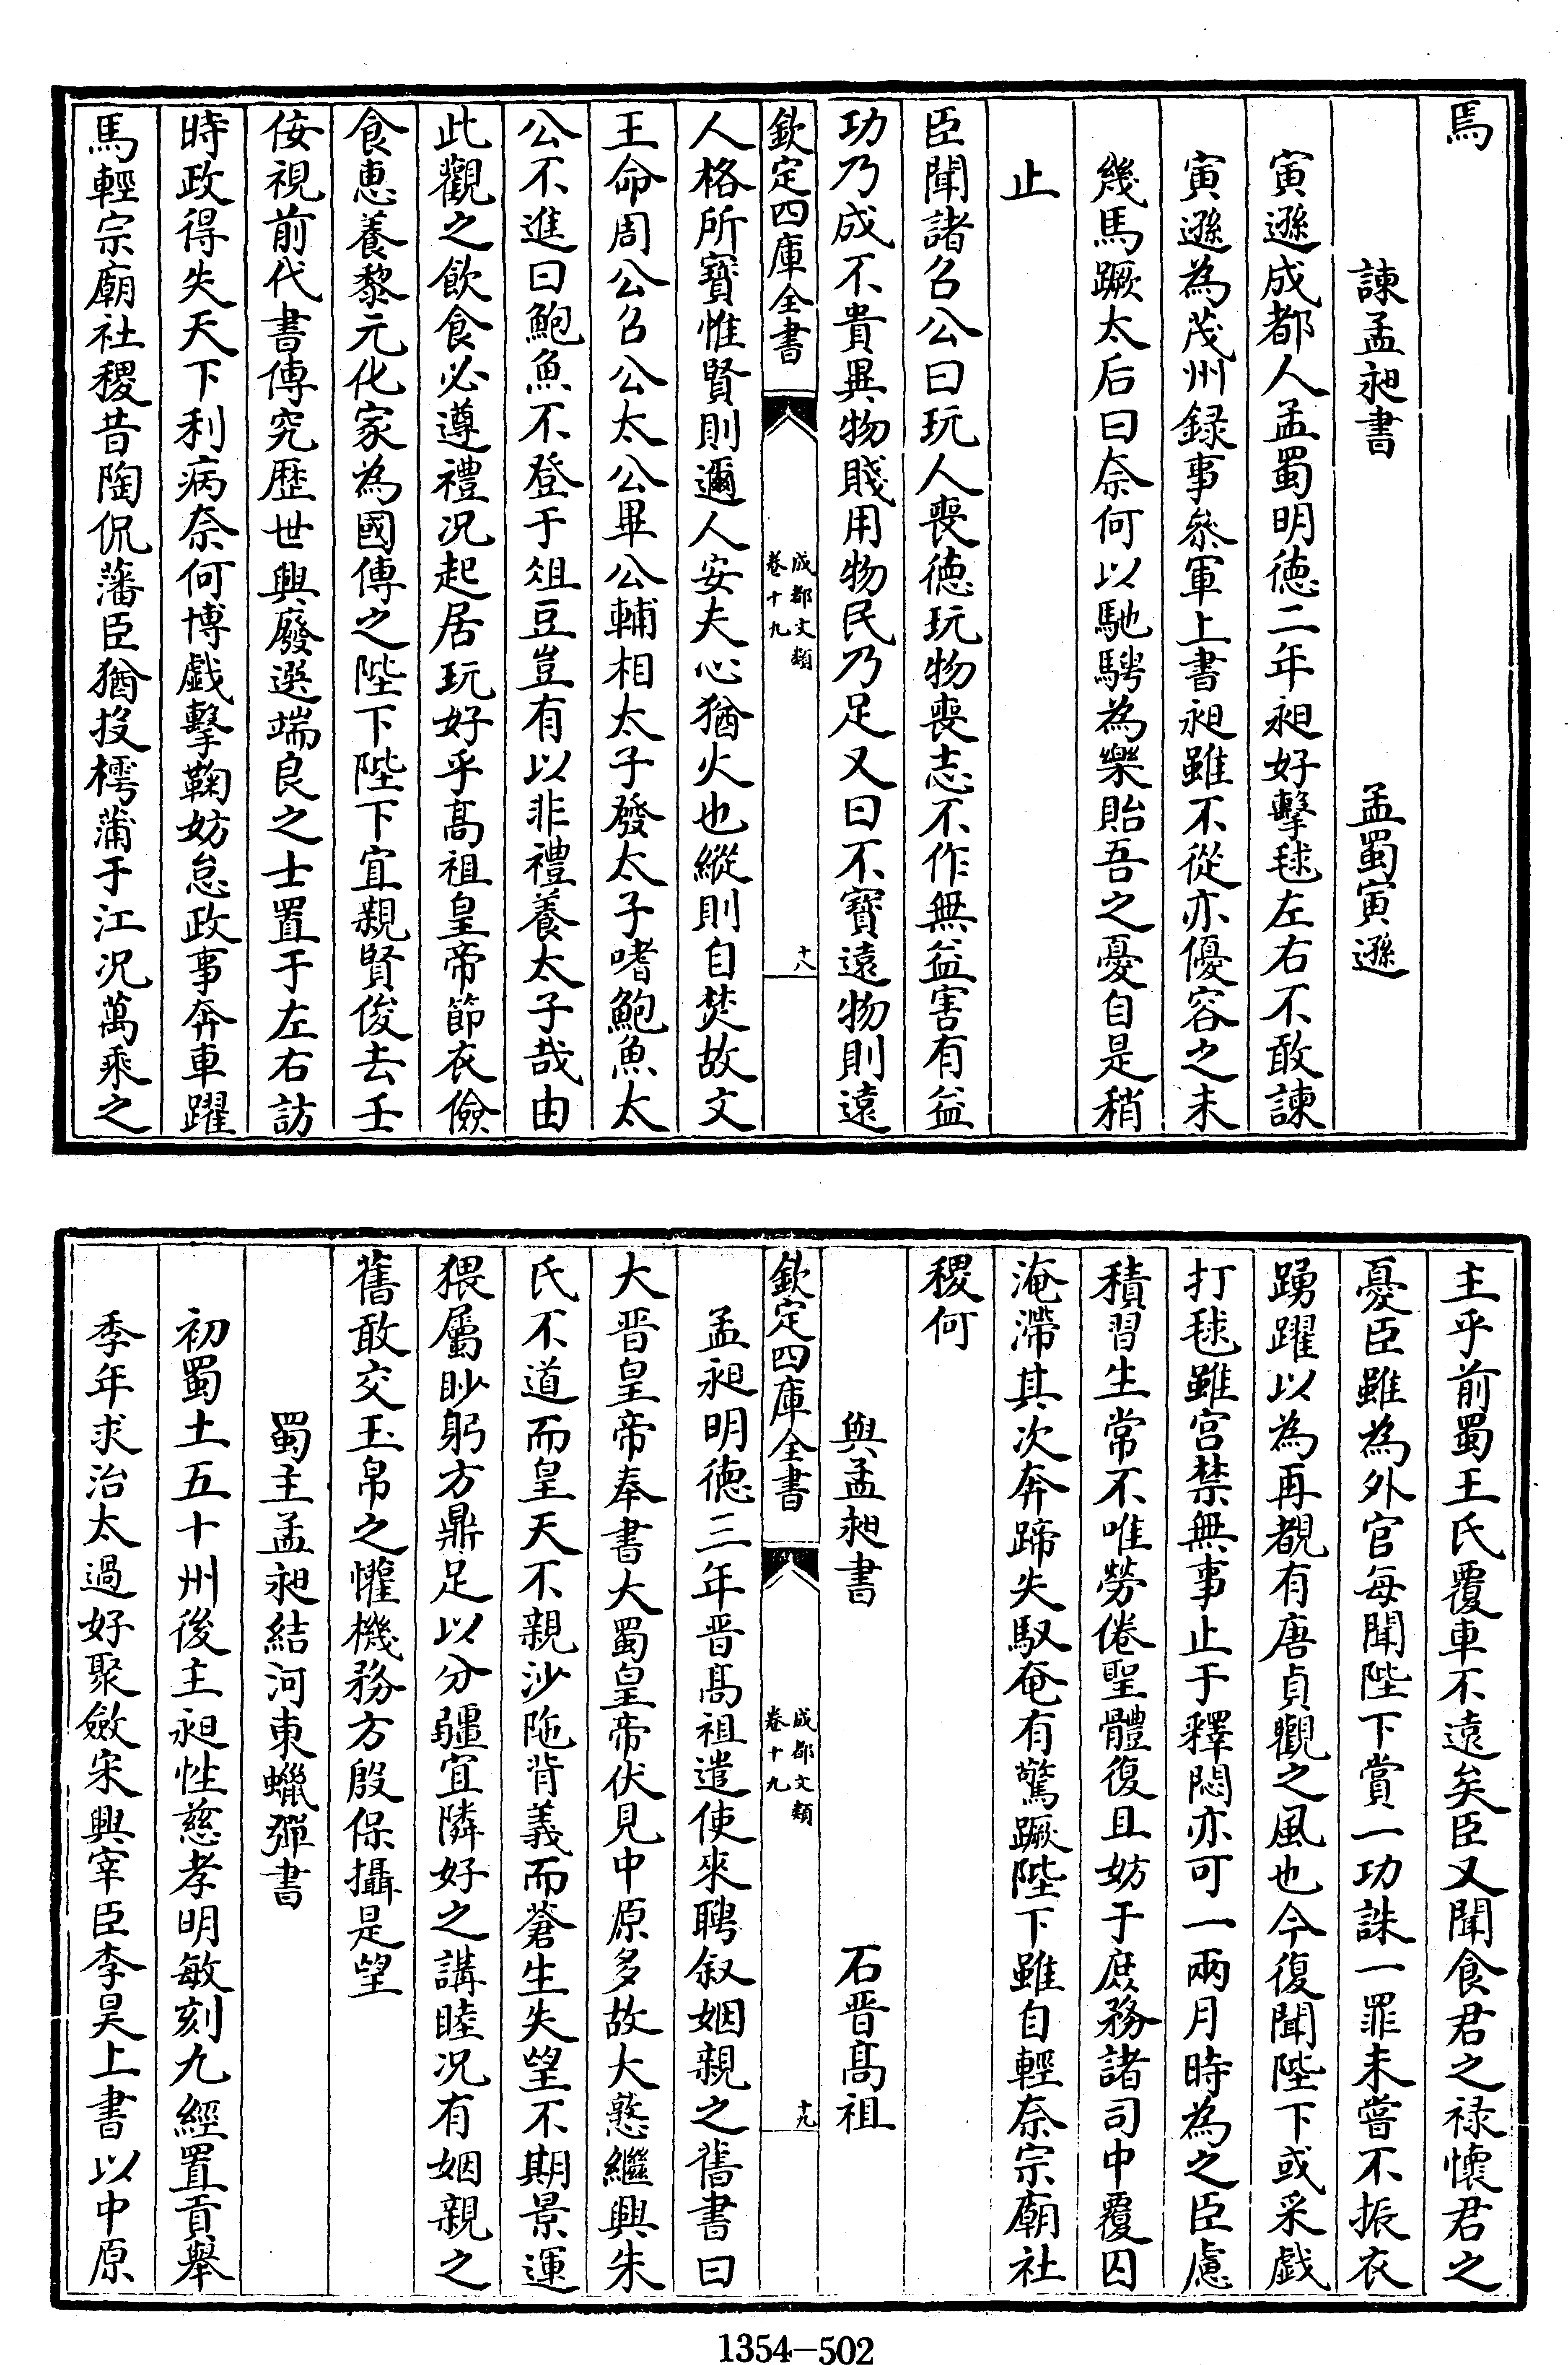 焉
諫孟昶書　孟蜀寅遜
寅遜成都人孟蜀明徳二年昶好擊毬左右不敢諫
寅遜為茂州録事叅軍上書昶雖不從亦優容之未
幾馬蹶太后曰奈何以馳騁為樂貽吾之憂自是稍
止
臣聞諸召公曰玩人喪徳玩物喪志不作無益害有益
功乃成不貴異物賤用物民乃足又曰不寳遠物則遠
欽定四庫全書
成都文類
卷十九
十八
人格所寳惟賢則邇人安夫心猶火也縱則自焚故文
王命周公召公太公畢公輔相太子發太子嗜鮑魚太
公不進曰鮑魚不登于俎豆豈有以非禮養太子哉由
此觀之飲食必遵禮况起居玩好乎髙祖皇帝節衣儉
食惠養黎元化家為國傳之陛下陛下宜親賢俊去壬
佞視前代書傳究歴世興廢選端良之士置于左右訪
時政得失天下利病奈何博戯擊鞠妨怠政事奔車躍
馬輕宗廟社稷昔陶侃藩臣猶投樗蒲于江况萬乘之
主乎前蜀王氏覆車不遠矣臣又聞食君之禄懐君之
憂臣雖為外官每聞陛下賞一功誅一罪未嘗不振衣
踴躍以為再覩有唐貞觀之風也今復聞陛下或采戯
打毬雖宫禁無事止于釋悶亦可一兩月時為之臣慮
積習生常不唯勞倦聖體復且妨于庶務諸司中覆因
淹滯其次奔蹄失馭奄有驚蹶陛下雖自輕奈宗廟社
稷何
與孟昶書　石晋髙祖
欽定四庫全書
成都文類
卷十九
十九
孟昶明徳三年晋髙祖遣使來聘叙姻親之舊書曰
大晋皇帝奉書大蜀皇帝伏見中原多故大憝繼興朱
氏不道而皇天不親沙陁背義而蒼生失望不期景運
猥屬眇躬方鼎足以分疆宜隣好之講睦况有姻親之
舊敢交玉帛之懽機務方殷保攝是望
蜀主孟昶結河東蠟彈書
初蜀土五十州後主昶性慈孝明敏刻九經置貢舉
季年求治太過好聚斂宋興宰臣李昊上書以中原
1354—502